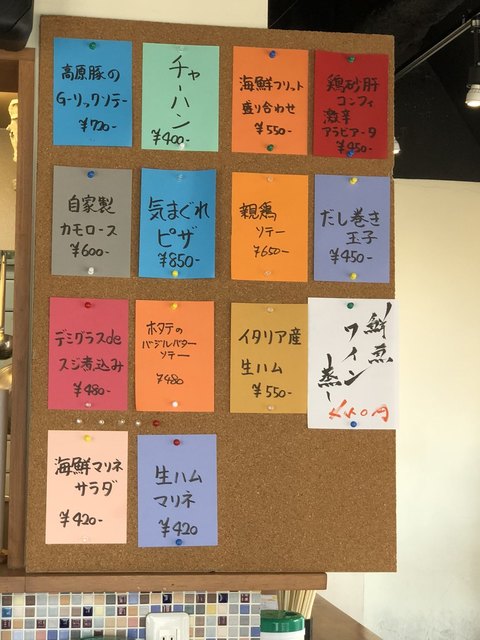 高原豚の
ガーリックソテー
¥720-
チャーハン
¥400-
海鮮フリット
盛り合わせ
¥550-
鶏砂肝
コンフィ
激辛
アラビアータ
¥450-
自家製
カモロース
¥600-
気まぐれ
ピザ
¥850-
親鶏
ソテー
¥650-
だし巻き
玉子
¥450-
デミグラスde
スジ煮込み
¥480-
ホタテの
バージルバター
ソテー
¥980
イタリア産
生ハム
¥550-
ワイン
蒸し
円
海鮮マリネ
サラダ
¥420-
生ハム
マリネ
¥420